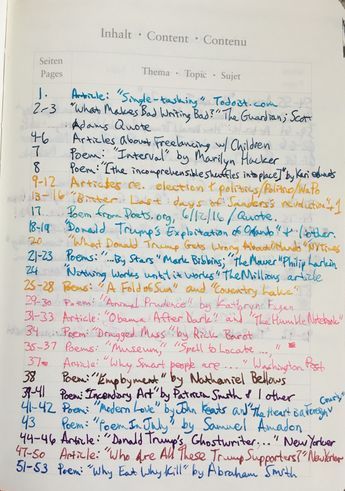 Inhalt · Content · Contenu
Seiten
Pages
Thema · Topic · Sujet
1. Article: "Single-tasking" Todoist.com
2-3 "What Makes Bad Writing Bad?" The Guardian; Scott
Adams Quote
4-6 Articles About Freelancing w/ Children
7 Poem: "Interval" by Marilyn Hacker
8 Poem: "[the incomprehensible shuffles into place]" by Kari
9-12 Articles re. election + politics/Politico/WaPo
13-16 "Bitter Last days of Sanders's revolution" + 1
17 Poem from Poets.org, 6/12/16 / Quote.
18-19 "Donald Trump's Exploitation of Orlando" + 1 other
20 "What Donald Trump Gets Wrong About" NYTimes
21-23 Poems: "-By Stars" Mark Bibbins; "The Mower" Philip Larkin
24 "Nothing works until it works" The Millions article
25-28 Poems: "A Fold of Sun" and "Coventry Lake"
29-30 Poem: "Annual Prudence" by Kathryn
31-33 Article: "Obama After Dark" and "The Humble Notebook"
34 Poem: "Dragged Mass" by Rick Barot
35-37 Poems: "Museum," "Spell to Locate ...,"
37 Article: "Why Smart people are ...." Washington Post
38 Poem: "Employment" by Nathaniel Bellows
39-41 Poem: Incendiary Art" by Patricia Smith + 1 other
41-42 Poem: "Modern Love" by John Keats and "The Heart is a Foreign Country"
43 Poem: "Poem In July" by Samuel Amadon
44-46 Article: "Donald Trump's Ghostwriter..." New Yorker
47-50 Article: "Who Are All These Trump Supporters?" New Yorker
51-53 Poem: "Why Eat Why Kill" by Abraham Smith